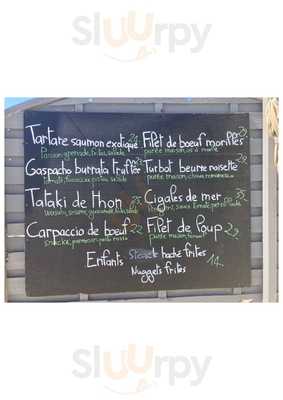 Sluurpy
Tartare saumon exotique 21
Passion, grenade, frites, salade
Gaspacho burrata truffée
tomate, salade
Tataki de thon 25
wasabi, sésame, guacamole, salade
Carpaccio de boeuf 22
parmesan, pesto
Filet de boeuf morilles
purée maison
Turbot beurre noisette
purée maison
Cigales de mer 35
Filet de loup 22
purée maison
Enfants Steack haché frites 14
Nuggets frites
Sluurpy